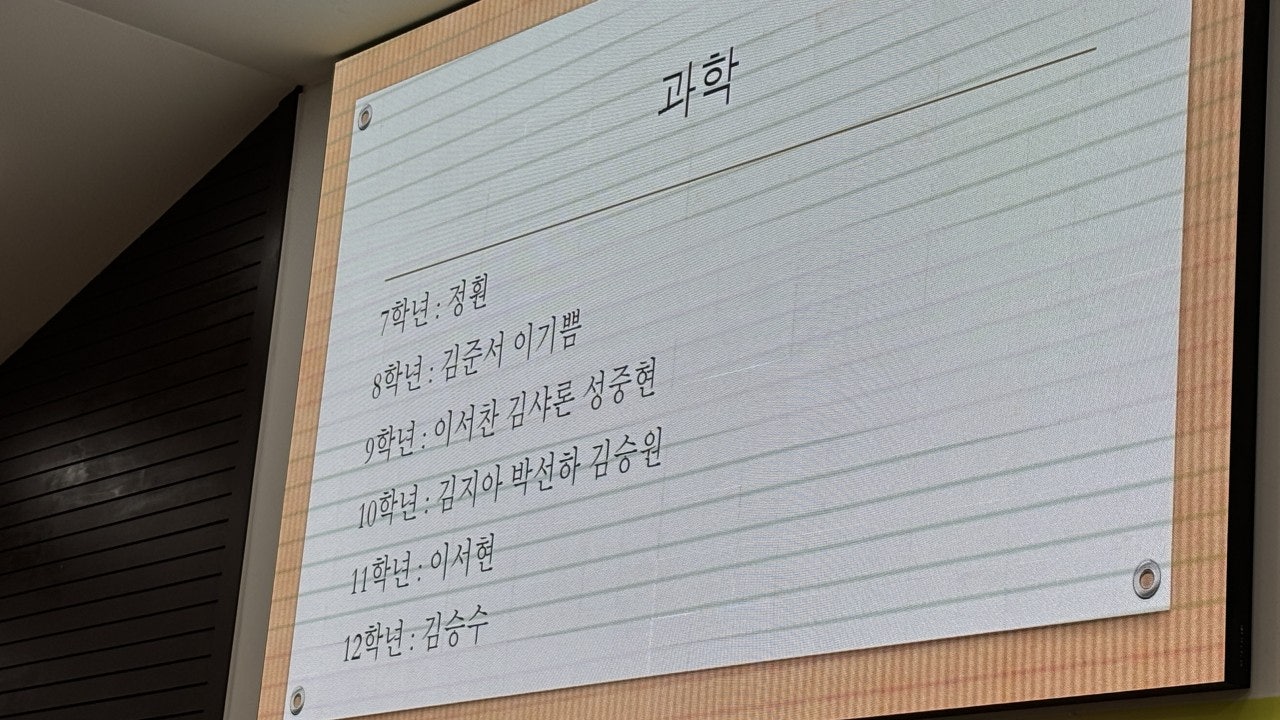 과학
7학년 : 정훤
8학년 : 김준서 이기쁨
9학년 : 이서찬 김샤론 성중현
10학년 : 김지아 박선하 김승원
11학년 : 이서현
12학년 : 김승수